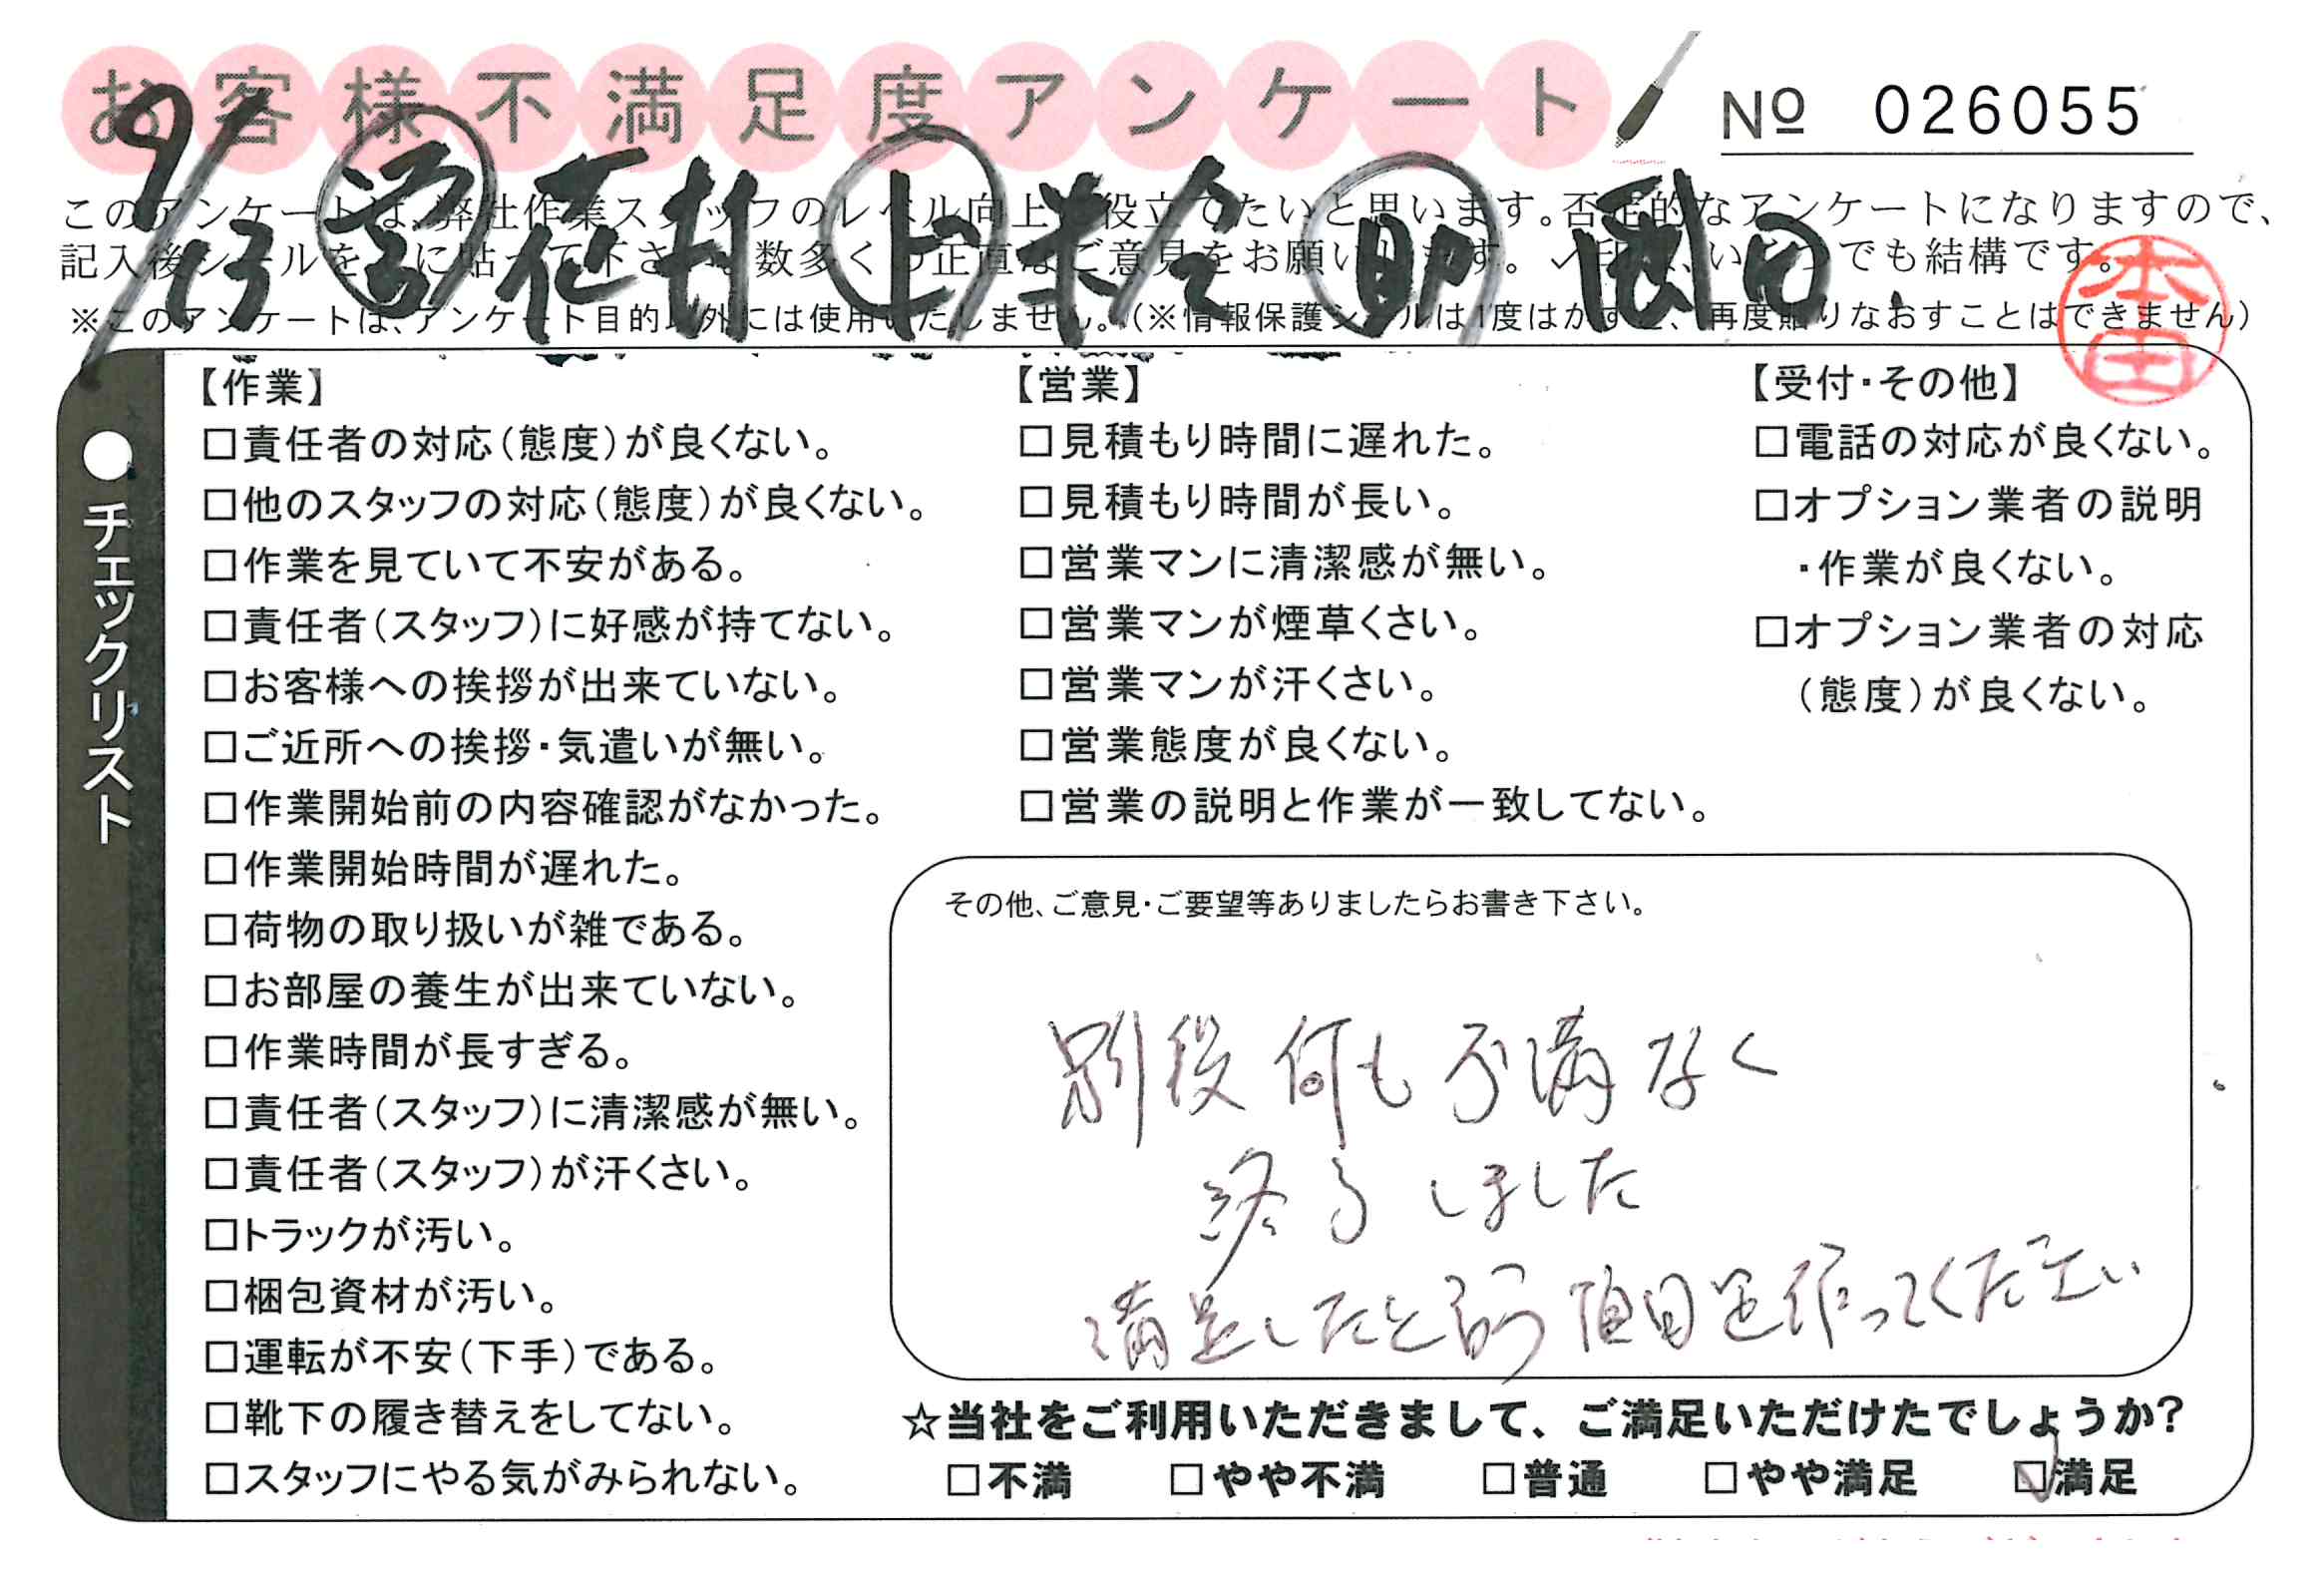 お客様不満足度アンケート
№ 026055
9/13 営 上 助 園田
このアンケートは、弊社作業スタッフのレベル向上に役立てたいと思います。否定的なアンケートになりますので、
記入後シールを上に貼って下さい。数多くの正直なご意見をお願いします。✓印は、いくつでも結構です。
※このアンケートは、アンケート目的以外には使用いたしません。(※情報保護シールは1度はがすと、再度貼りなおすことはできません)
本田
●チェックリスト
【作業】
□責任者の対応(態度)が良くない。
□他のスタッフの対応(態度)が良くない。
□作業を見ていて不安がある。
□責任者(スタッフ)に好感が持てない。
□お客様への挨拶が出来ていない。
□ご近所への挨拶・気遣いが無い。
□作業開始前の内容確認がなかった。
□作業開始時間が遅れた。
□荷物の取り扱いが雑である。
□お部屋の養生が出来ていない。
□作業時間が長すぎる。
□責任者(スタッフ)に清潔感が無い。
□責任者(スタッフ)が汗くさい。
□トラックが汚い。
□梱包資材が汚い。
□運転が不安(下手)である。
□靴下の履き替えをしてない。
□スタッフにやる気がみられない。
【営業】
□見積もり時間に遅れた。
□見積もり時間が長い。
□営業マンに清潔感が無い。
□営業マンが煙草くさい。
□営業マンが汗くさい。
□営業態度が良くない。
□営業の説明と作業が一致してない。
【受付・その他】
□電話の対応が良くない。
□オプション業者の説明
・作業が良くない。
□オプション業者の対応
(態度)が良くない。
その他、ご意見・ご要望等ありましたらお書き下さい。
別段何も不満なく
終了しました
満足したと言う項目を作ってください
☆当社をご利用いただきまして、ご満足いただけたでしょうか?
□不満 □やや不満 □普通 □やや満足 ☑満足